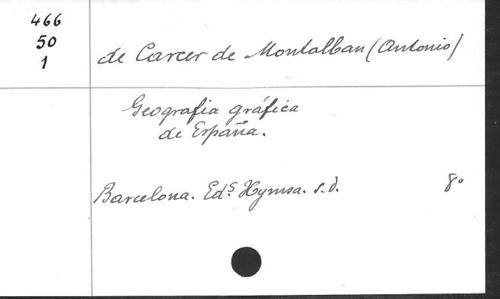 466
50
1
de Carcer de Montalban (Antonio)
Geografia gráfica
de España.
Barcelona. Eds Hymsa. s.d. 8º